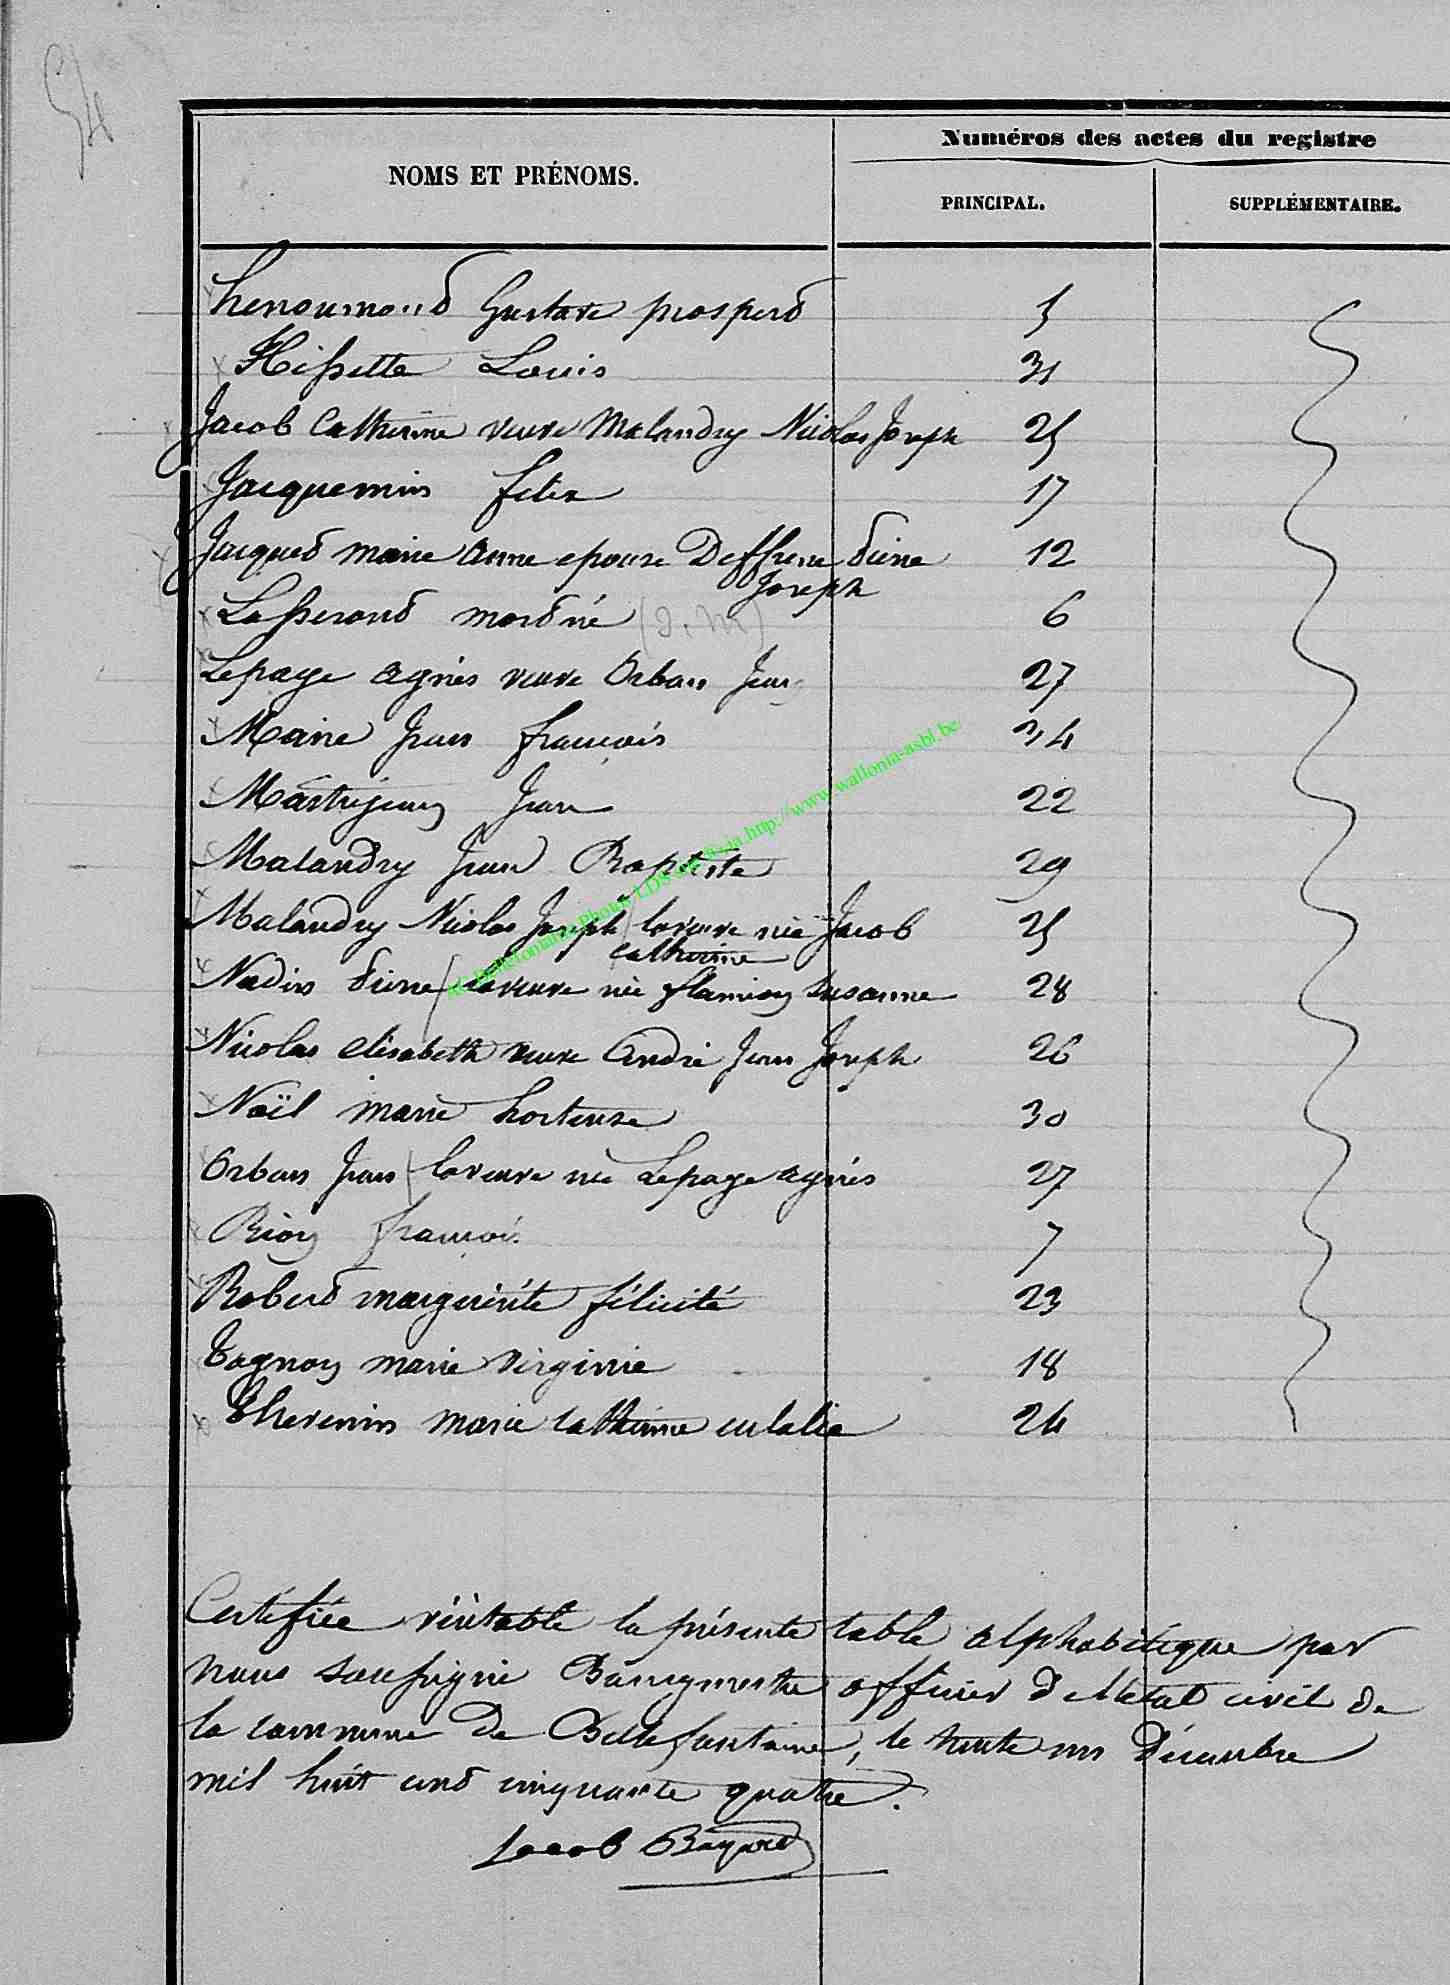 54
Numéros des actes du registre
NOMS ET PRÉNOMS.
PRINCIPAL.
SUPPLÉMENTAIRE.
henoumond Gustave prosperd 5
Hissette Louis 31
Jacob Catherine veuve Malandry Nicolas Joseph 25
Jacquemin felix 17
Jacques marie anne epouse Deffrene Pierre 12
Joseph
Lasserand mord né 6
Lepage agnès veuve Orban Jean 27
Maire Jean françois 34
Mastrejean Jean 22
Malandry Jean Baptiste 29
Malandry Nicolas Joseph (la veuve née Jacob 25
catherine
Nadin Pierre (la veuve née flamion susanne 28
Nicolas elisabeth veuve André Jean Joseph 26
Noël marie hortense 30
Orban Jean (la veuve née Lepage agnès 27
Rion françois 7
Roberd marguerite félicité 23
Tagnon marie virginie 18
Thevenin marie catherine eulalie 24
Certifiée véritable la présente table alphabétique par
nous soussigné Bourgmestre officier de l'état civil de
la commune de Bellefontaine, le trente un Décembre
mil huit cent cinquante quatre.
Jacob Bayard
http://www.wallonia-asbl.be